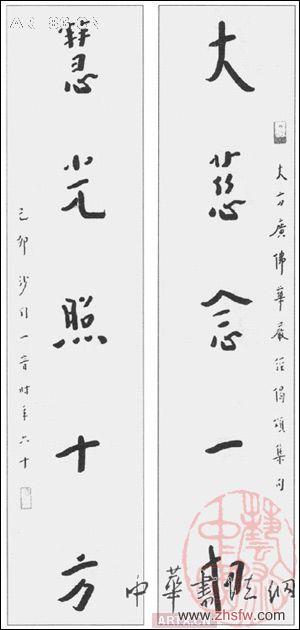 大慈念一切
大方廣佛華嚴經偈頌集句
慧光照十方
己卯沙門一音時年六十
中華書法網
www.zhsfw.com